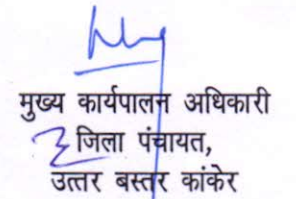 मुख्य कार्यपालन अधिकारी
जिला पंचायत,
उत्तर बस्तर कांकेर